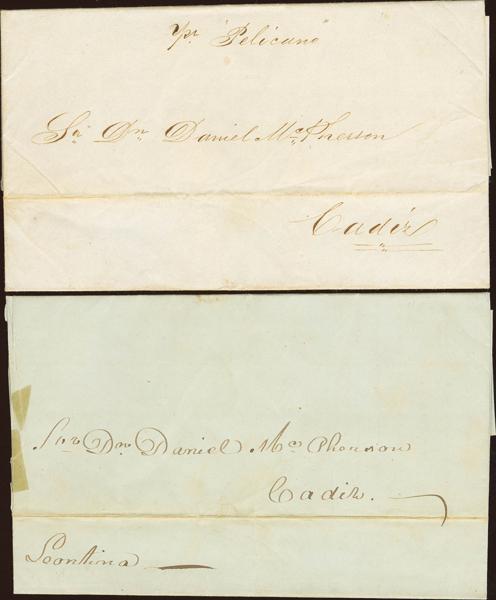 Ypr Pelicano
Sr Dn Daniel McPherson
Cadiz
Sor Dn Daniel McPherson
Cadiz.
Leontina